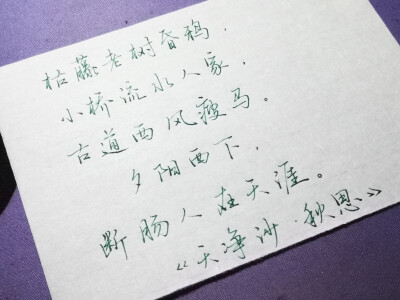 枯藤老树昏鸦，
小桥流水人家，
古道西风瘦马。
夕阳西下，
断肠人在天涯。
《天净沙·秋思》